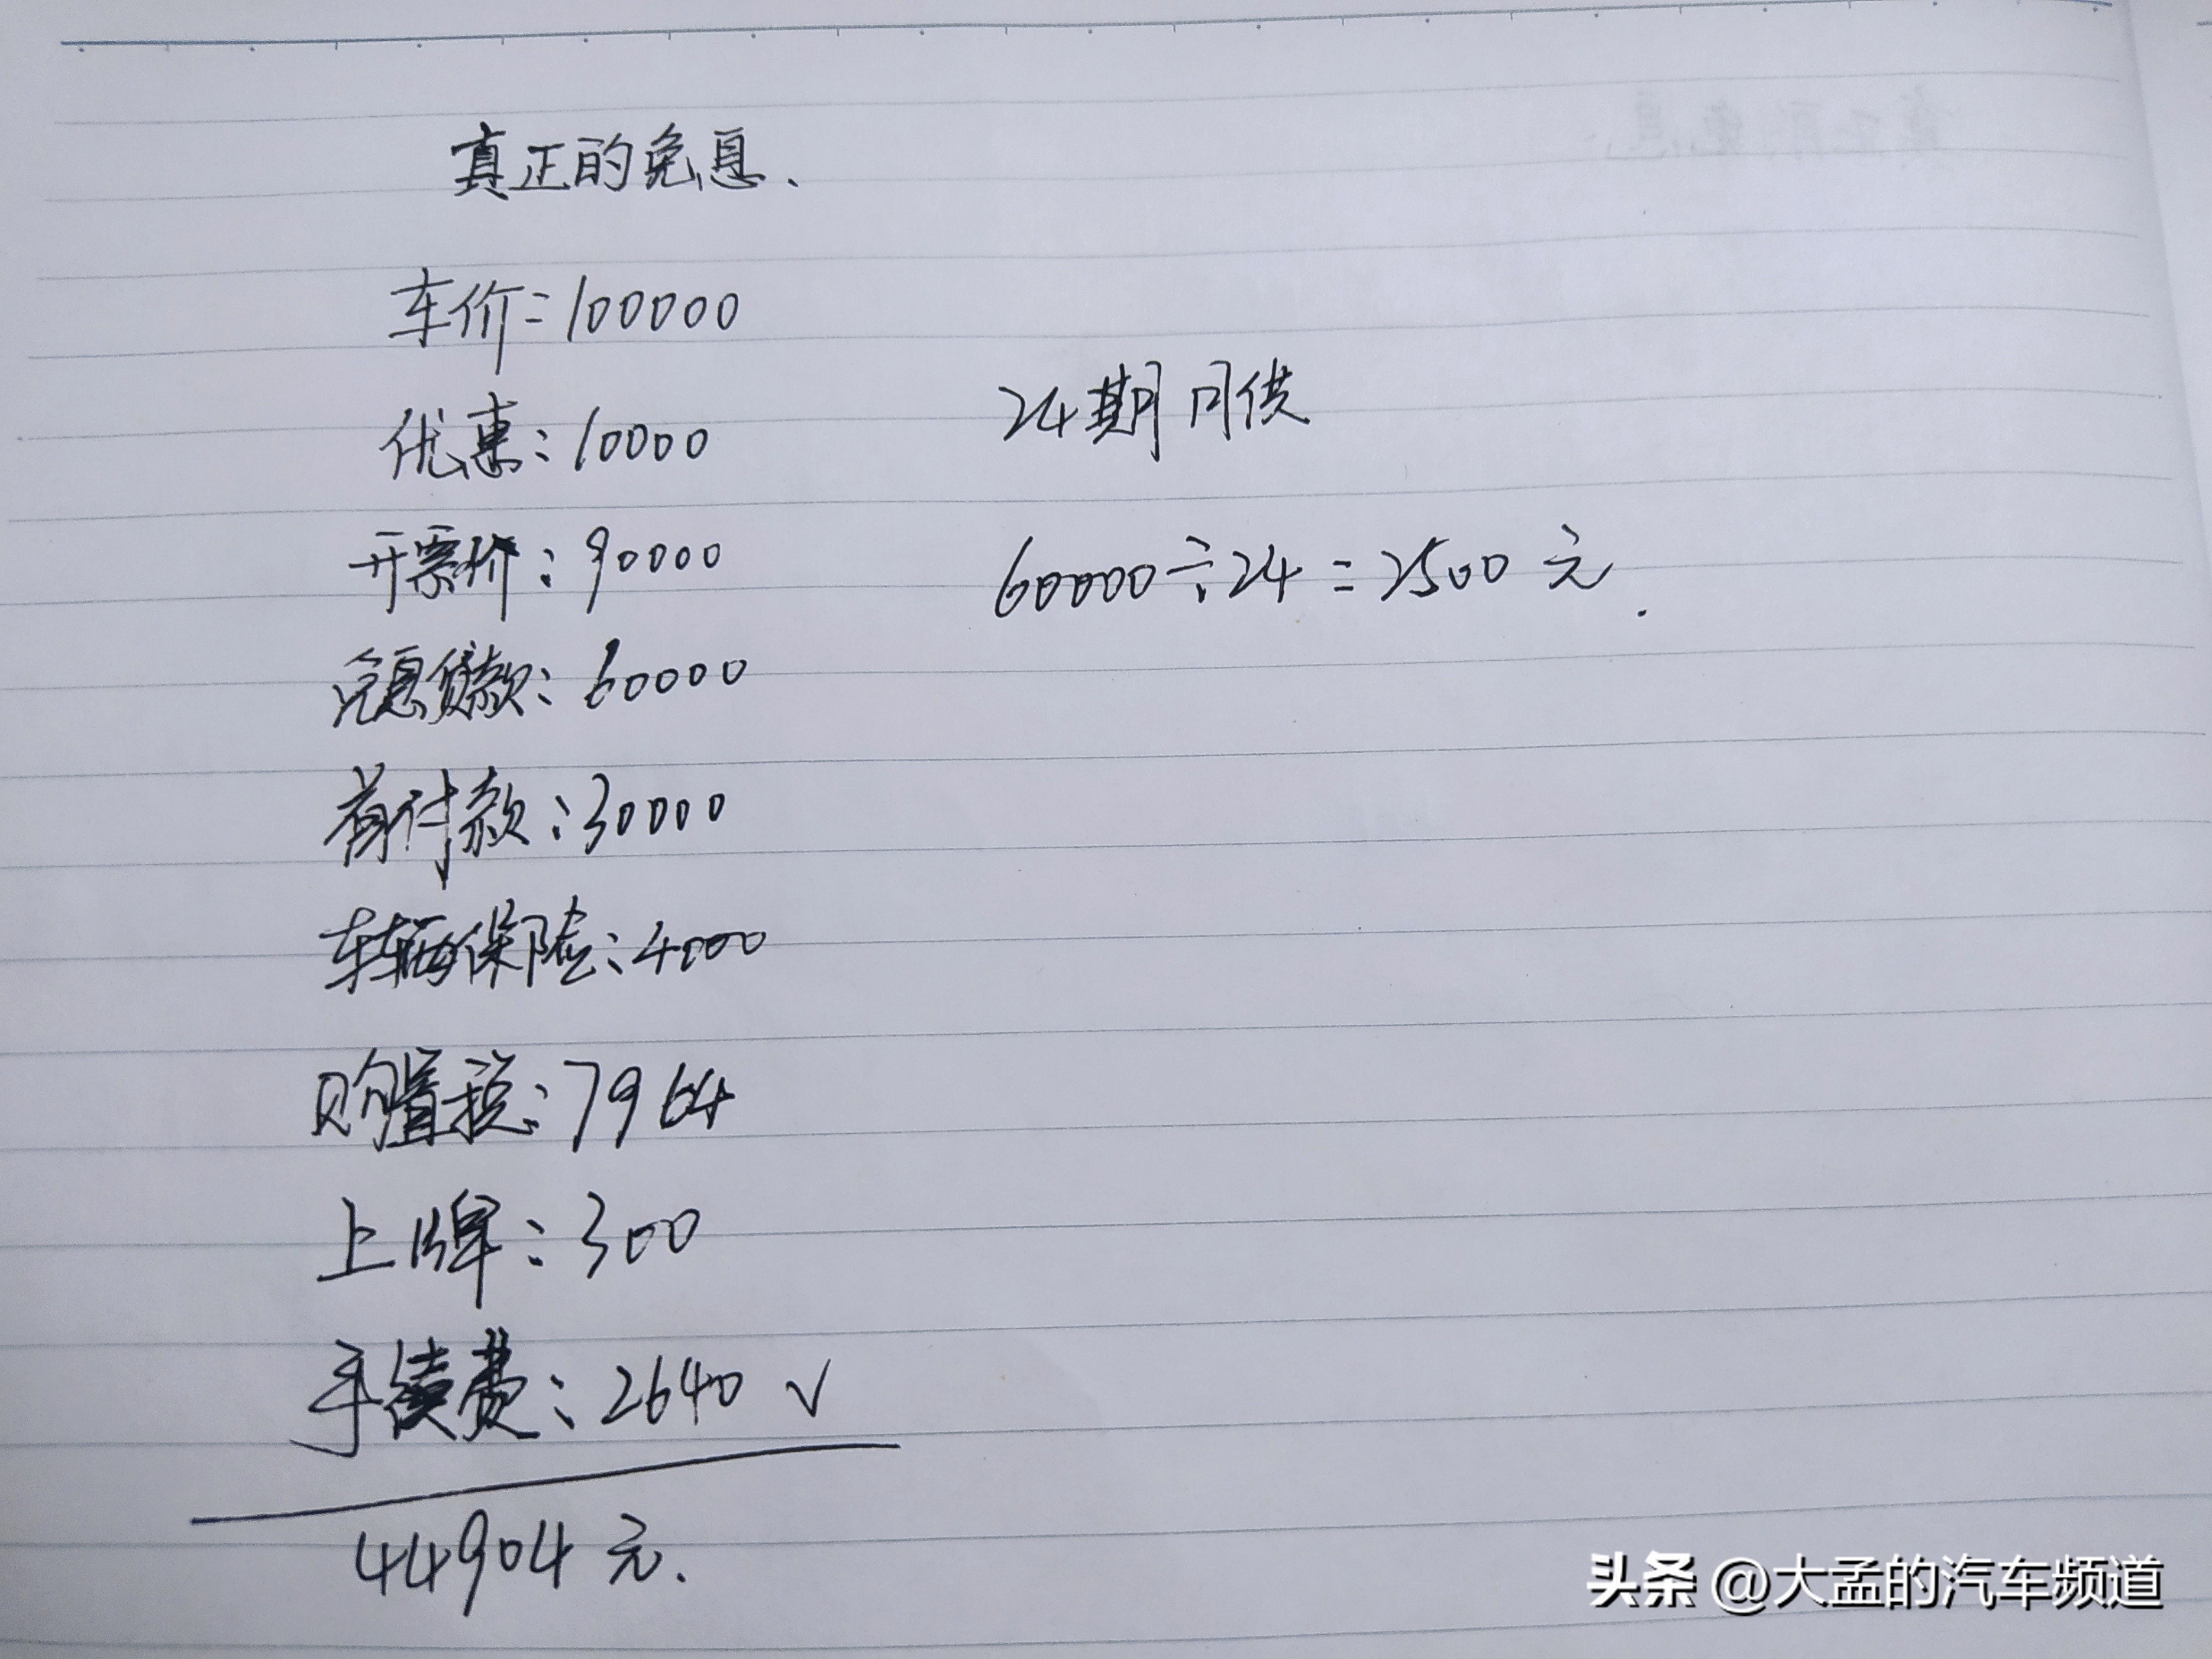 真正的免息、
车价=100000
优惠：10000
开票价：90000
免息贷款：60000
首付款：30000
车辆保险：4000
购置税：7964
上牌：300
手续费：2640 √
44904元.
24期月供
60000÷24=2500元.
头条 @大孟的汽车频道